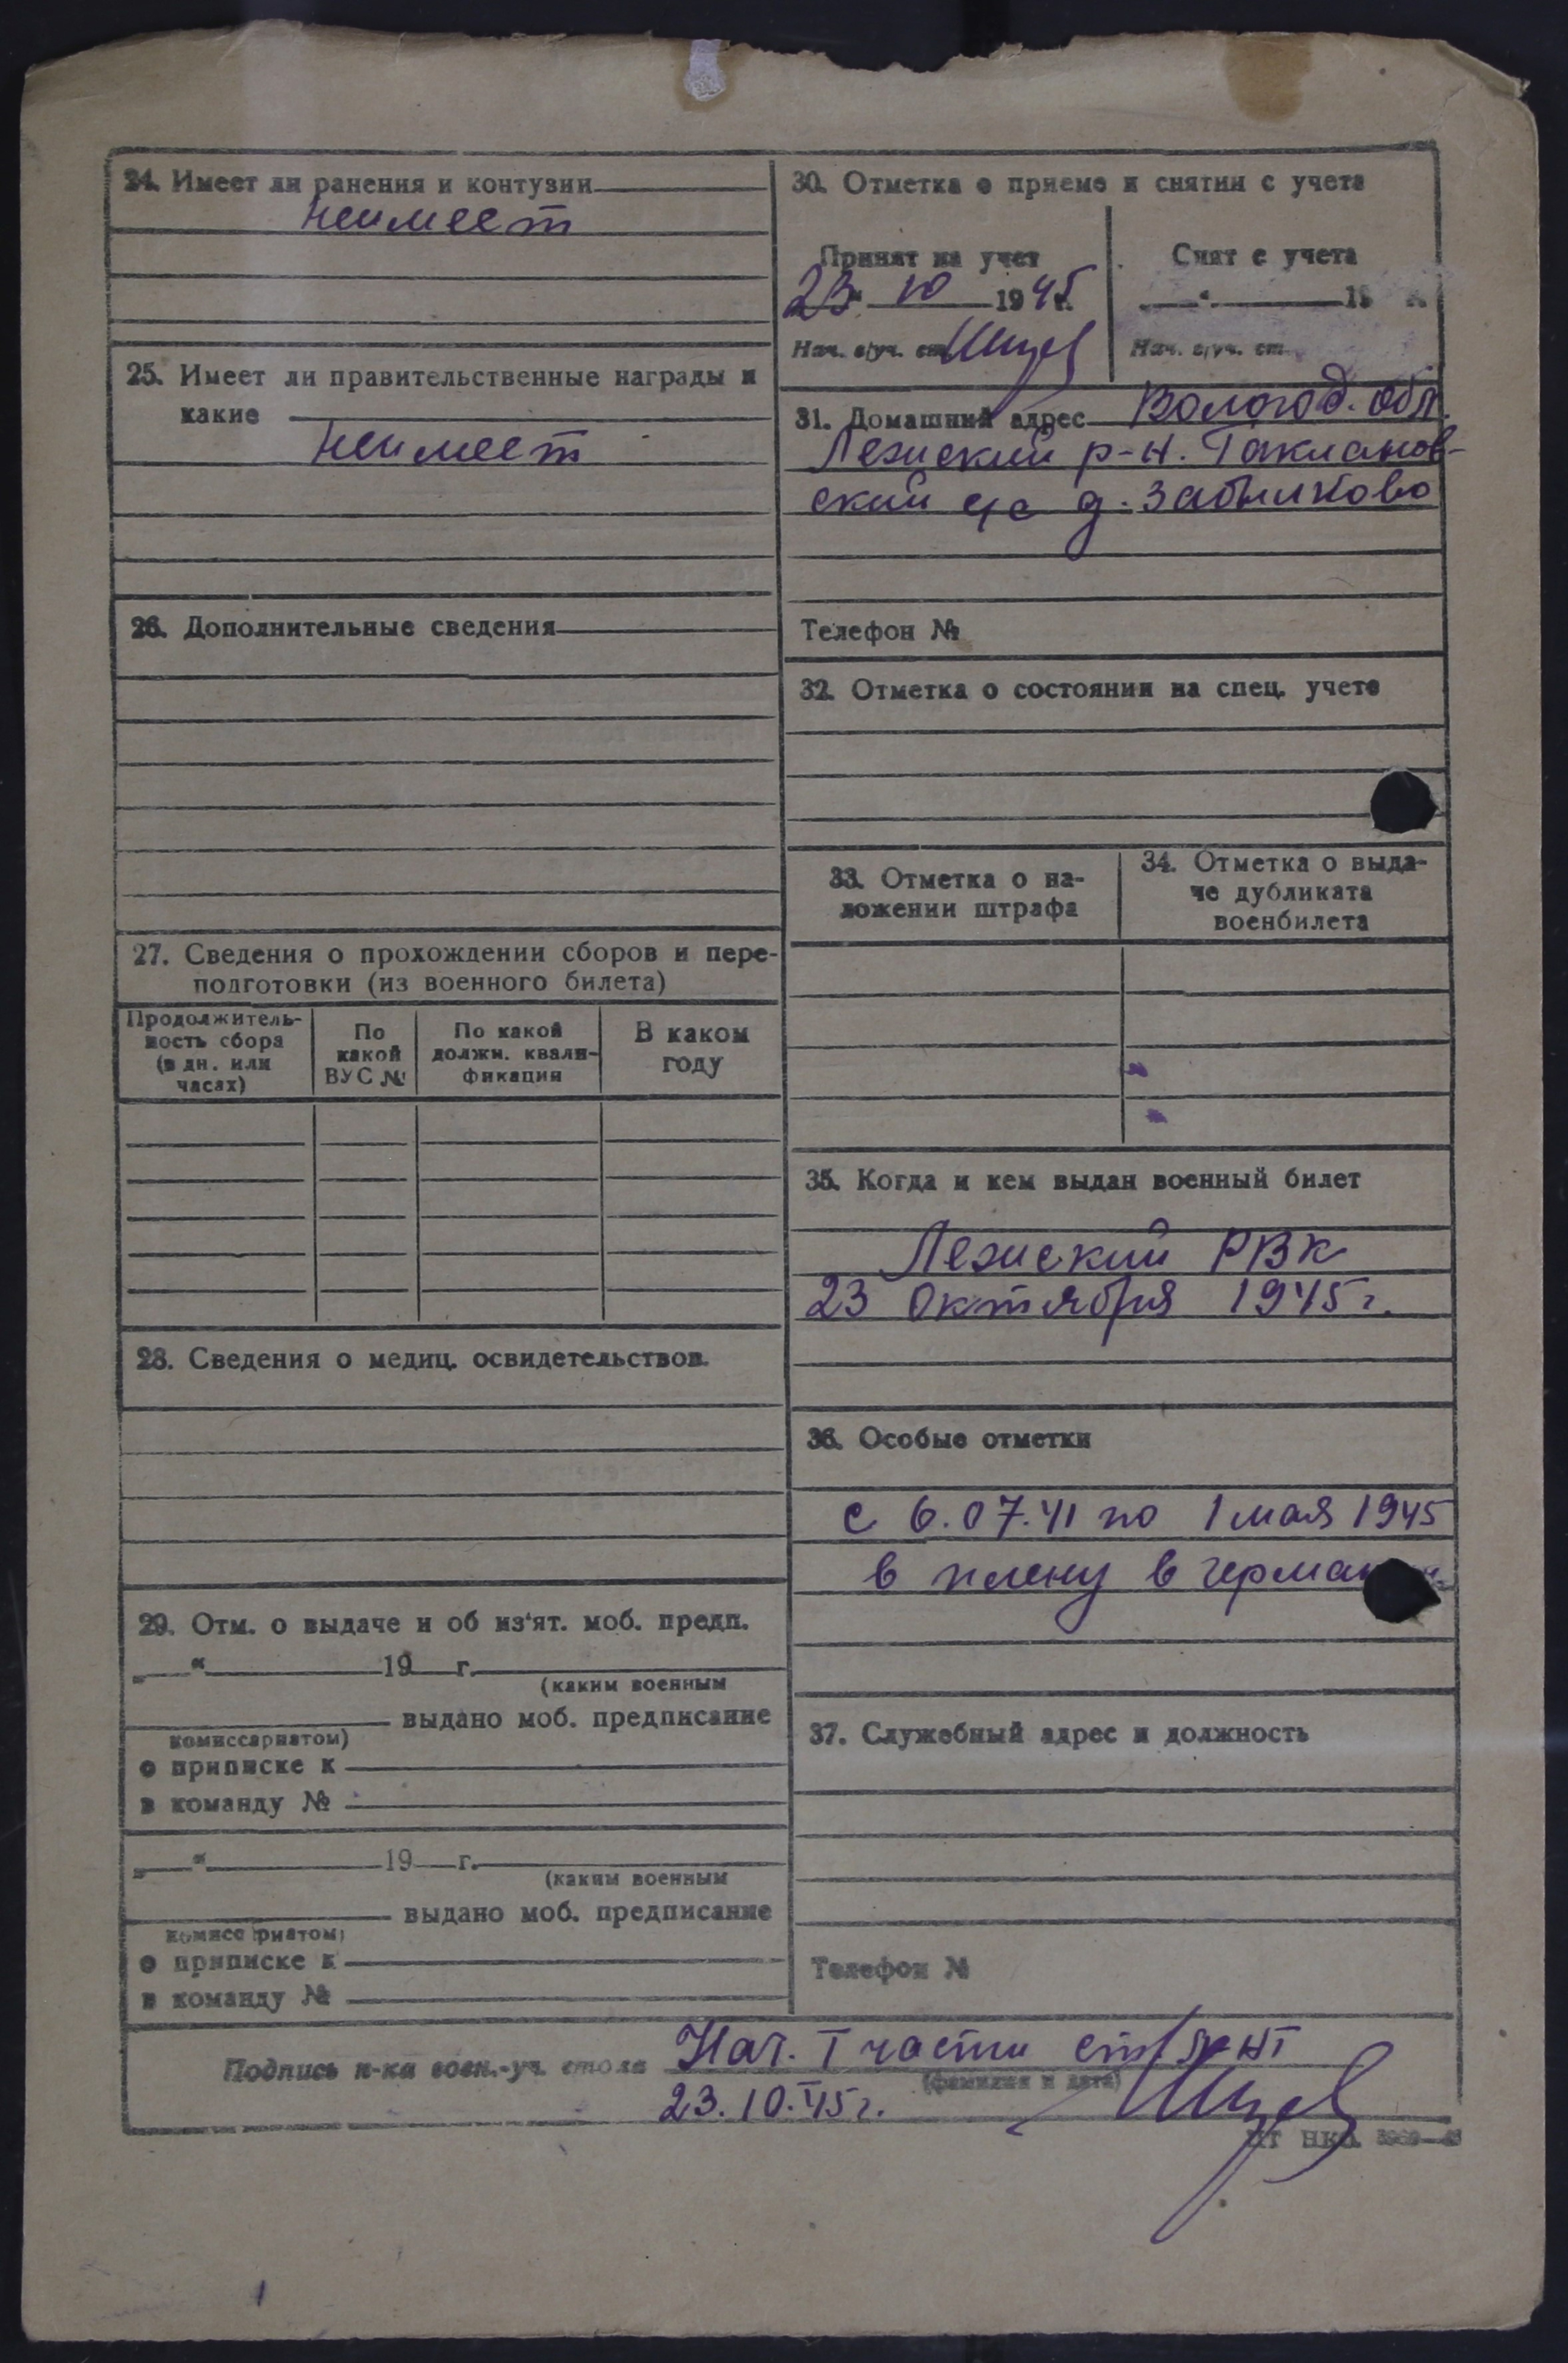 24. Имеет ли ранения и контузии
неимеет
25. Имеет ли правительственные награды и
какие
неимеет
26. Дополнительные сведения
27. Сведения о прохождении сборов и пере-
подготовки (из военного билета)
Продолжитель-
ность сбора
(в дн. или
часах)
По
какой
ВУС №
По какой
должн. квали-
фикация
В каком
году
28. Сведения о медиц. освидетельствов.
29. Отм. о выдаче и об из'ят. моб. предп.
„ “ 19 г.
(каким военным
выдано моб. предписание
комиссариатом)
о приписке к
в команду №
„ “ 19 г.
(каким военным
выдано моб. предписание
комисс риатом)
о приписке к
в команду №
30. Отметка о приеме и снятии с учета
Принят на учет
23 “ 10 1945 г.
Нач. в/уч. ст.
Снят с учета
„ “ 19 г.
Нач. в/уч. ст.
31. Домашний адрес Вологод. обл.
Лежский р-н. Такланов-
ский с/с д. Забылково
Телефон №
32. Отметка о состоянии на спец. учете
33. Отметка о на-
ложении штрафа
34. Отметка о выда-
че дубликата
военбилета
35. Когда и кем выдан военный билет
Лежский РВК
23 октября 1945 г.
36. Особые отметки
с 6.07.41 по 1 мая 1945
в плену в герман
37. Служебный адрес и должность
Телефон №
Подпись н-ка воен.-уч. стола Нач. I части ст. л-нт
(фамилия и дата)
23.10.45 г.